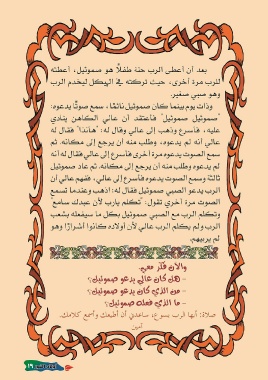 بعد أن أعطى الرب حنة طفلًا هو صموئيل، أعطته
للرب مرة أخرى، حيث تركته في الهيكل ليخدم الرب
وهو صبي صغير.
وذات يوم بينما كان صموئيل نائمًا، سمع صوتًا يدعوه:
"صموئيل صموئيل" فاعتقد أن عالي الكاهن ينادي
عليه، فأسرع وذهب إلى عالي وقال له: "هأنذا" فقال له
عالي أنه لم يدعوه، وطلب منه أن يرجع إلى مكانه. ثم
سمع الصوت يدعوه مرة أخرى فأسرع إلى عالي فقال له أنه
لم يدعوه وطلب منه أن يرجع إلى مكانه. ثم عاد صموئيل
ثالثة وسمع الصوت يدعوه فأسرع إلى عالي، ففهم عالي أن
الرب يدعو الصبي صموئيل فقال له: اذهب وعندما تسمع
الصوت مرة أخرى تقول: "تكلم يارب لأن عبدك سامع"
وتكلم الرب مع الصبي صموئيل بكل ما سيفعله بشعب
الرب ولم يكلم الرب عالي لأن أولاده كانوا أشرارًا وهو
لم يربيهم.
والآن فكر معي:
- هل كان عالي يدعو صموئيل؟
- من الذي كان يدعو صموئيل؟
- ما الذي فعله صموئيل؟
صلاة: أيها الرب يسوع، ساعدني أن أطيعك وأسمع كلامك.
آمين
١٩